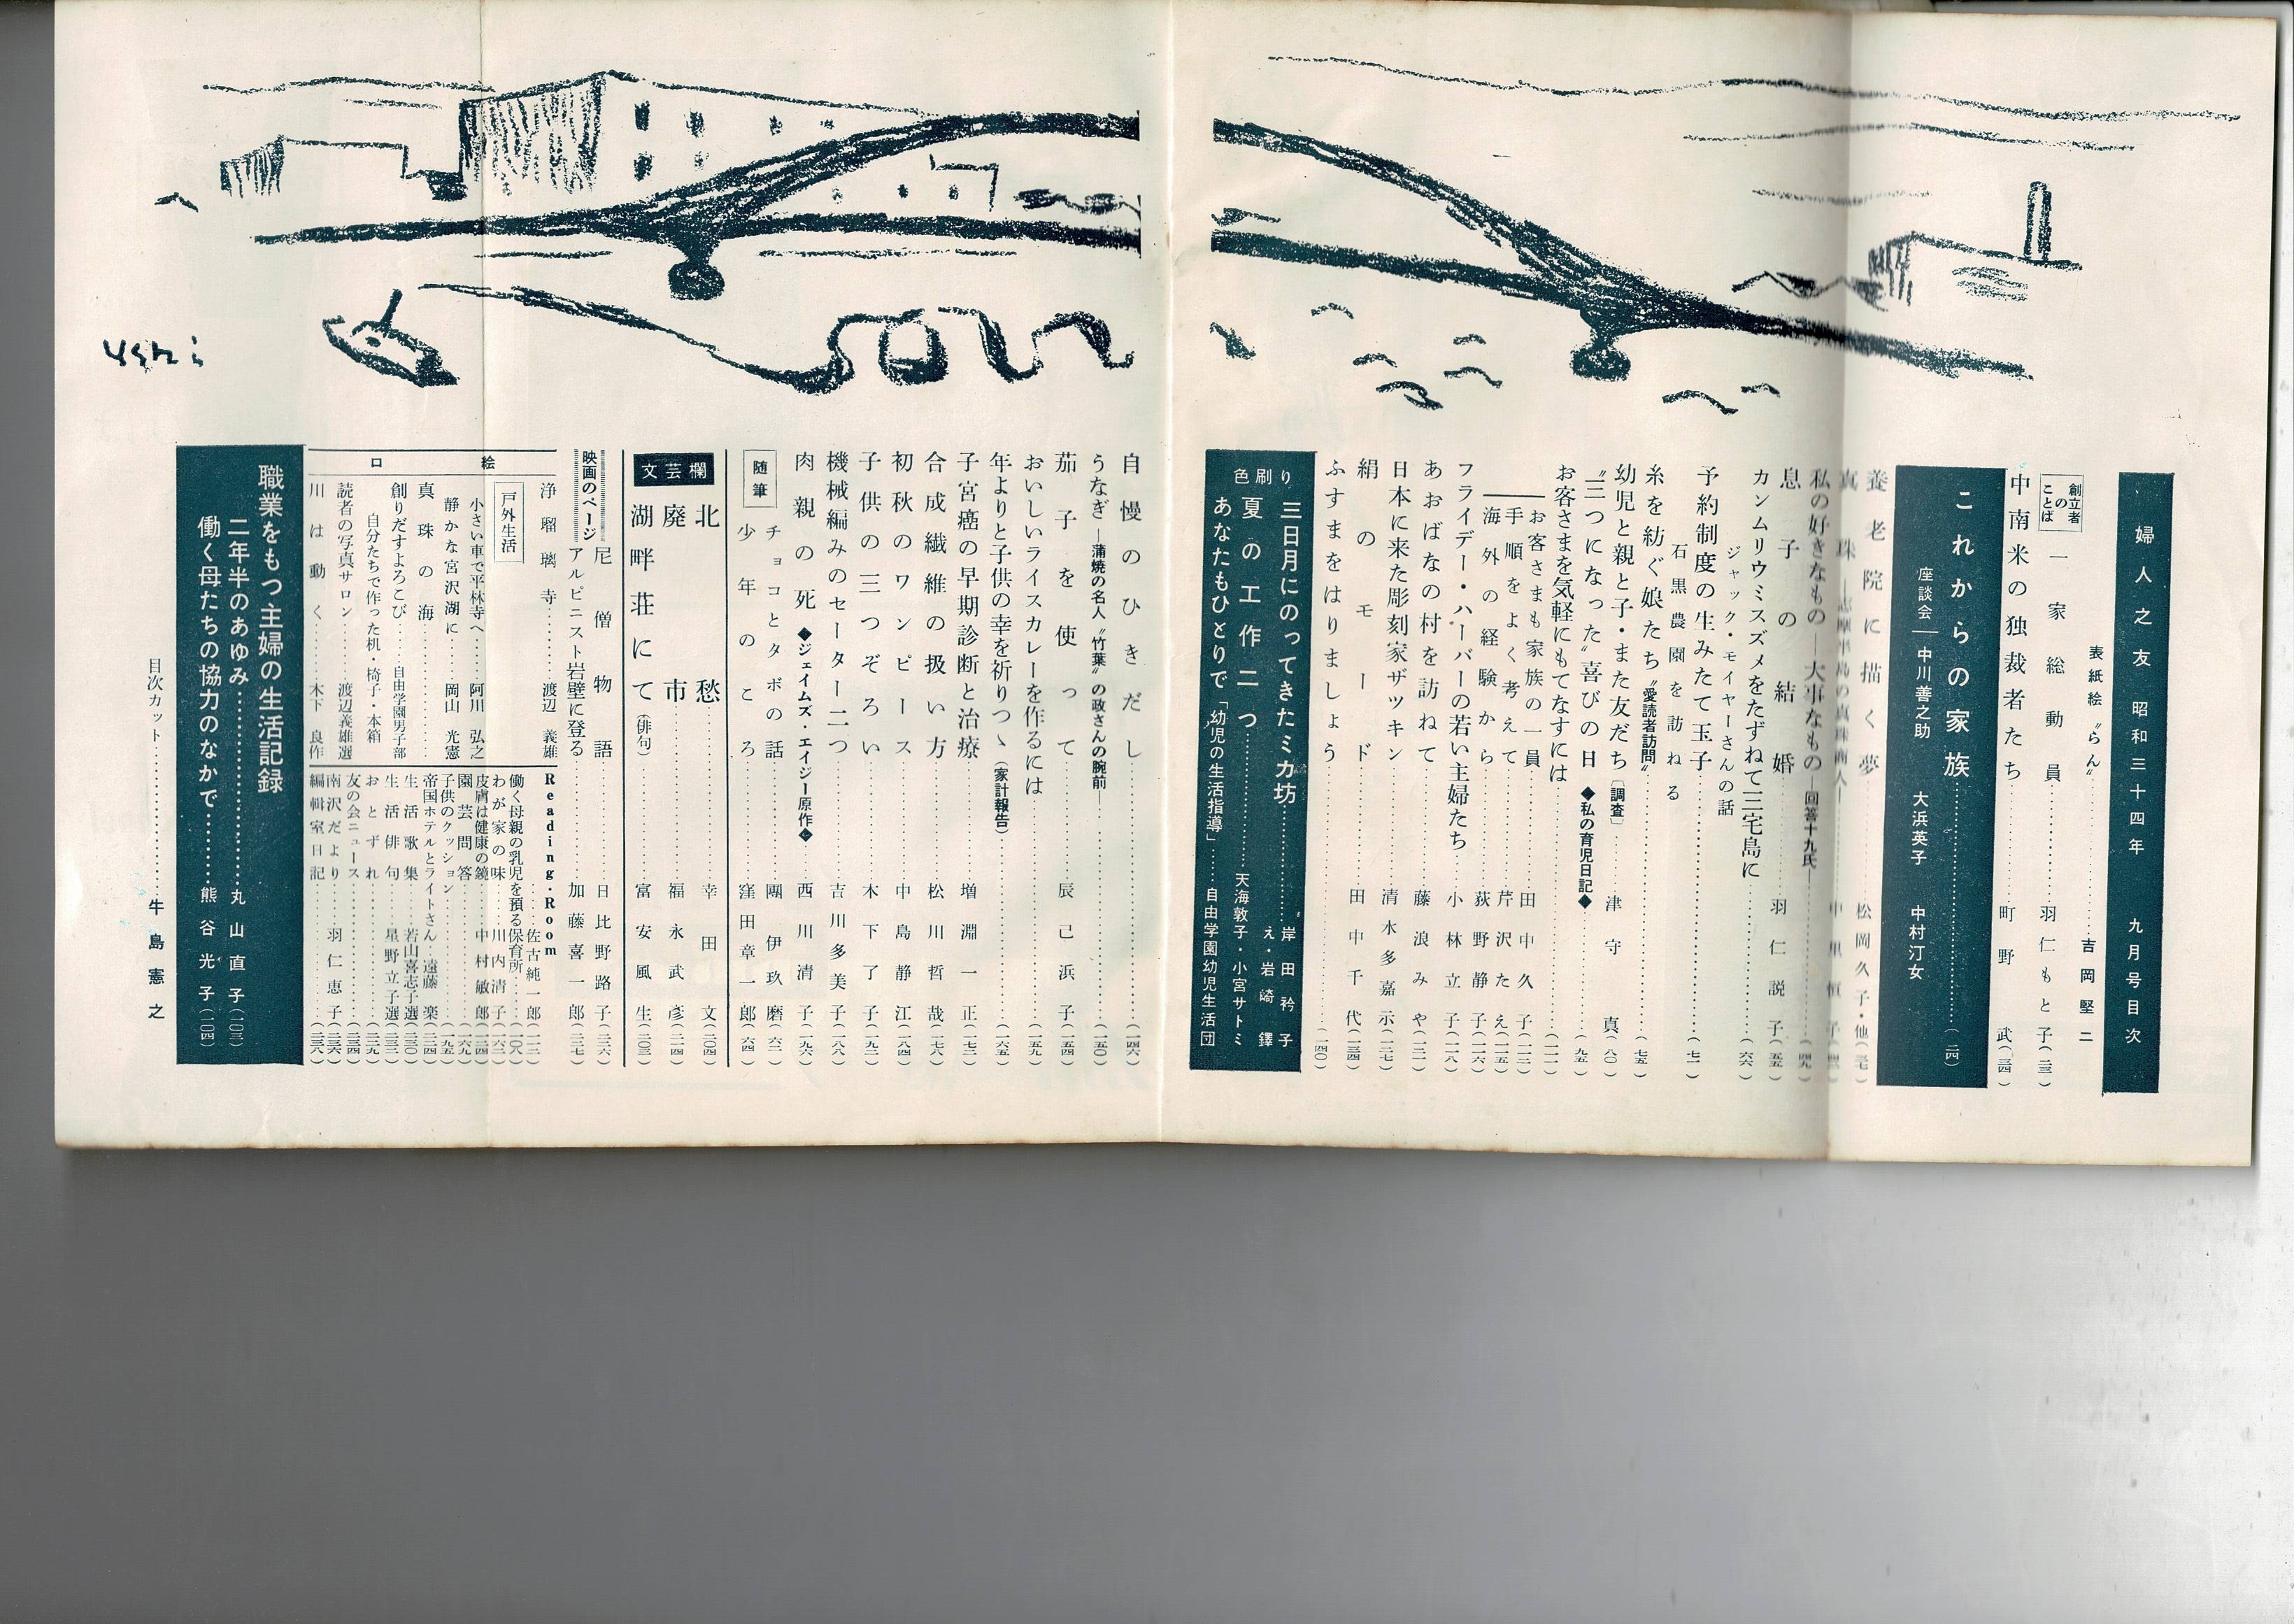 婦人之友 昭和三十四年 九月号目次
表紙絵 〝らん〟 吉岡堅二
創立者のことば
一家総動員……羽仁もと子(二三)
中南米の独裁者たち……町野武(三四)
これからの家族……(二四)
座談会―中川善之助 大浜英子 中村汀女
養老院に描く夢……松岡久子・他(三七)
真珠
私の好きなもの―大事なもの―回答十九氏―(四九)
息子の結婚……羽仁説子(五五)
カンムリウミスズメをたずねて三宅島に……(六六)
ジャック・モイヤーさんの話
予約制度の生みたて玉子……(七一)
石黒農園を訪ねる
糸を紡ぐ娘たち〝愛読者訪問〟……(七五)
幼児と親と子・また友だち〔調査〕……津守真(八〇)
〝三つになった〟喜びの日◆私の育児日記◆……(九五)
お客さまを気軽にもてなすには……(一一一)
―お客さまも家族の一員……田中久子(一一二)
手順をよく考えて……芹沢たえ(一一五)
海外の経験から……荻野静子(一一六)
フライデー・ハーバーの若い主婦たち……小林立子(一一八)
あおばなの村を訪ねて……藤浪みや(一二二)
日本に来た彫刻家ザツキン……清水多嘉示(一二七)
絹のモード……田中千代(一三四)
ふすまをはりましょう……(一四〇)
色刷り
三日月にのってきたミカ坊……岸田衿子
え・岩崎鐸
夏の工作二つ……天海敦子・小宮サトミ
あなたもひとりで「幼児の生活指導」……自由学園幼児生活団
自慢のひきだし……(一四六)
うなぎ―蒲焼の名人〝竹葉〟の政さんの腕前―……(一五〇)
茄子を使って……辰己浜子(一五四)
おいしいライスカレーを作るには……(一五九)
年よりと子供の幸を祈りつゝ(家計報告)……(一六五)
子宮癌の早期診断と治療……増淵一正(一七二)
合成繊維の扱い方……松川哲哉(一七八)
初秋のワンピース……中島静江(一八四)
子供の三つぞろい……木下了子(一九二)
機械編みのセーター二つ……吉川多美子(一八八)
肉親の死◆ジェイムズ・エイジー原作◆……西川清子(一九六)
随筆
チョコとタボの話……團伊玖磨(六二)
少年のころ……窪田章一郎(六四)
文芸欄
北愁……幸田文(二〇四)
廃市……福永武彦(二一四)
湖畔荘にて(俳句)……富安風生(二〇三)
映画のページ
尼僧物語……日比野路子(二三六)
アルピニスト岩壁に登る……加藤喜一郎(二三七)
口絵
浄瑠璃寺……渡辺義雄
戸外生活
小さい車で平林寺へ……阿川弘之
静かな宮沢湖に……岡山光憲
真珠の海……
創りだすよろこび……自由学園男子部
自分たちで作った机・椅子・本箱
読者の写真サロン……渡辺義雄選
川は動く……木下良作
Reading・Room
……佐古純一郎(一一二)
働く母親の乳児を預る保育所……(一〇八)
わが家の味……川内清子(一六三)
皮膚は健康の鏡……中村敏郎(二四)
園芸問答……(一六九)
子供のクッション……(一九五)
帝国ホテルとライトさん……遠藤楽(二四)
生活歌集……若山喜志子選(二三〇)
生活俳句……星野立子選(二三二)
おとずれ……(二二九)
友の会ニュース……(二三四)
南沢だより……羽仁恵子(二三六)
編輯室日記……(二三八)
職業をもつ主婦の生活記録
二年半のあゆみ……丸山直子(一〇三)
働く母たちの協力のなかで……熊谷光子(一〇四)
目次カット……牛島憲之